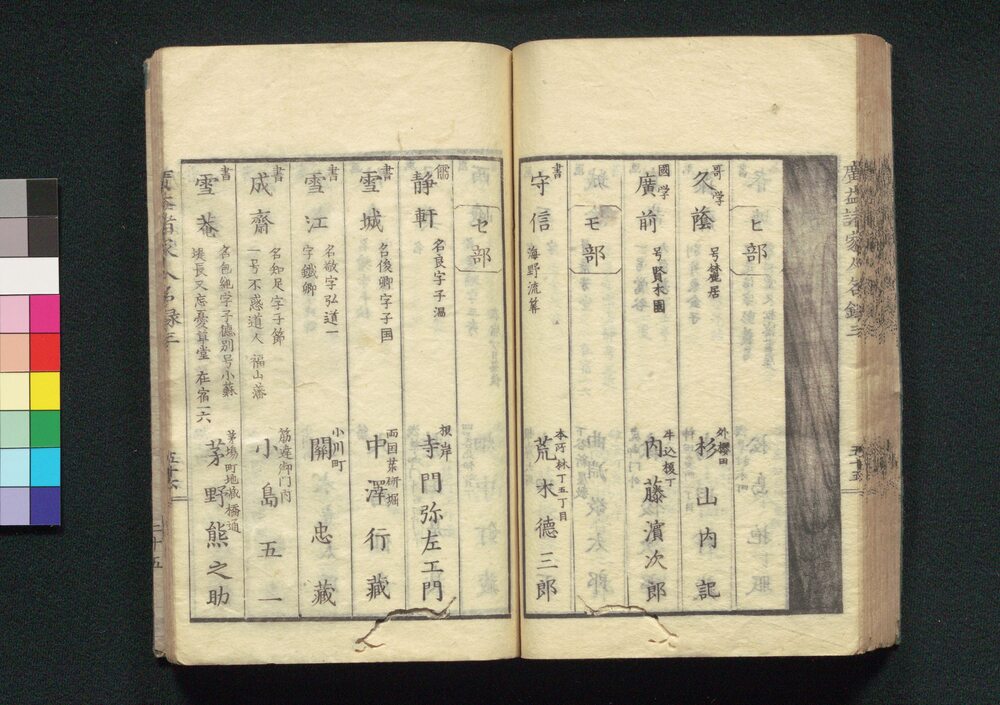 廣益諸家人名録三
ヒ部
哥学
久蔭
号麓居
外櫻田
杉山内記
國学
廣前
号賢木園
牛込榎丁
内藤濱次郎
モ部
書
守信
海野流幕
本所林丁五丁目
荒木徳三郎
セ部
儒
静軒
名良字子温
根岸
寺門弥左エ門
書
雪城
名俊卿字子国
両国薬研堀
中澤行藏
書
雪江
名敬字弘道一
字鐵卿
小川町
關忠藏
書
成齋
名知足字子節
一号不惑道人 福山藩
筋違御門内
小島五一
書
雪菴
名包純字子徳別号小蘇
長又忘憂草堂 在宿一六
茅場町地蔵橋通
茅野熊之助
五十六
二十五